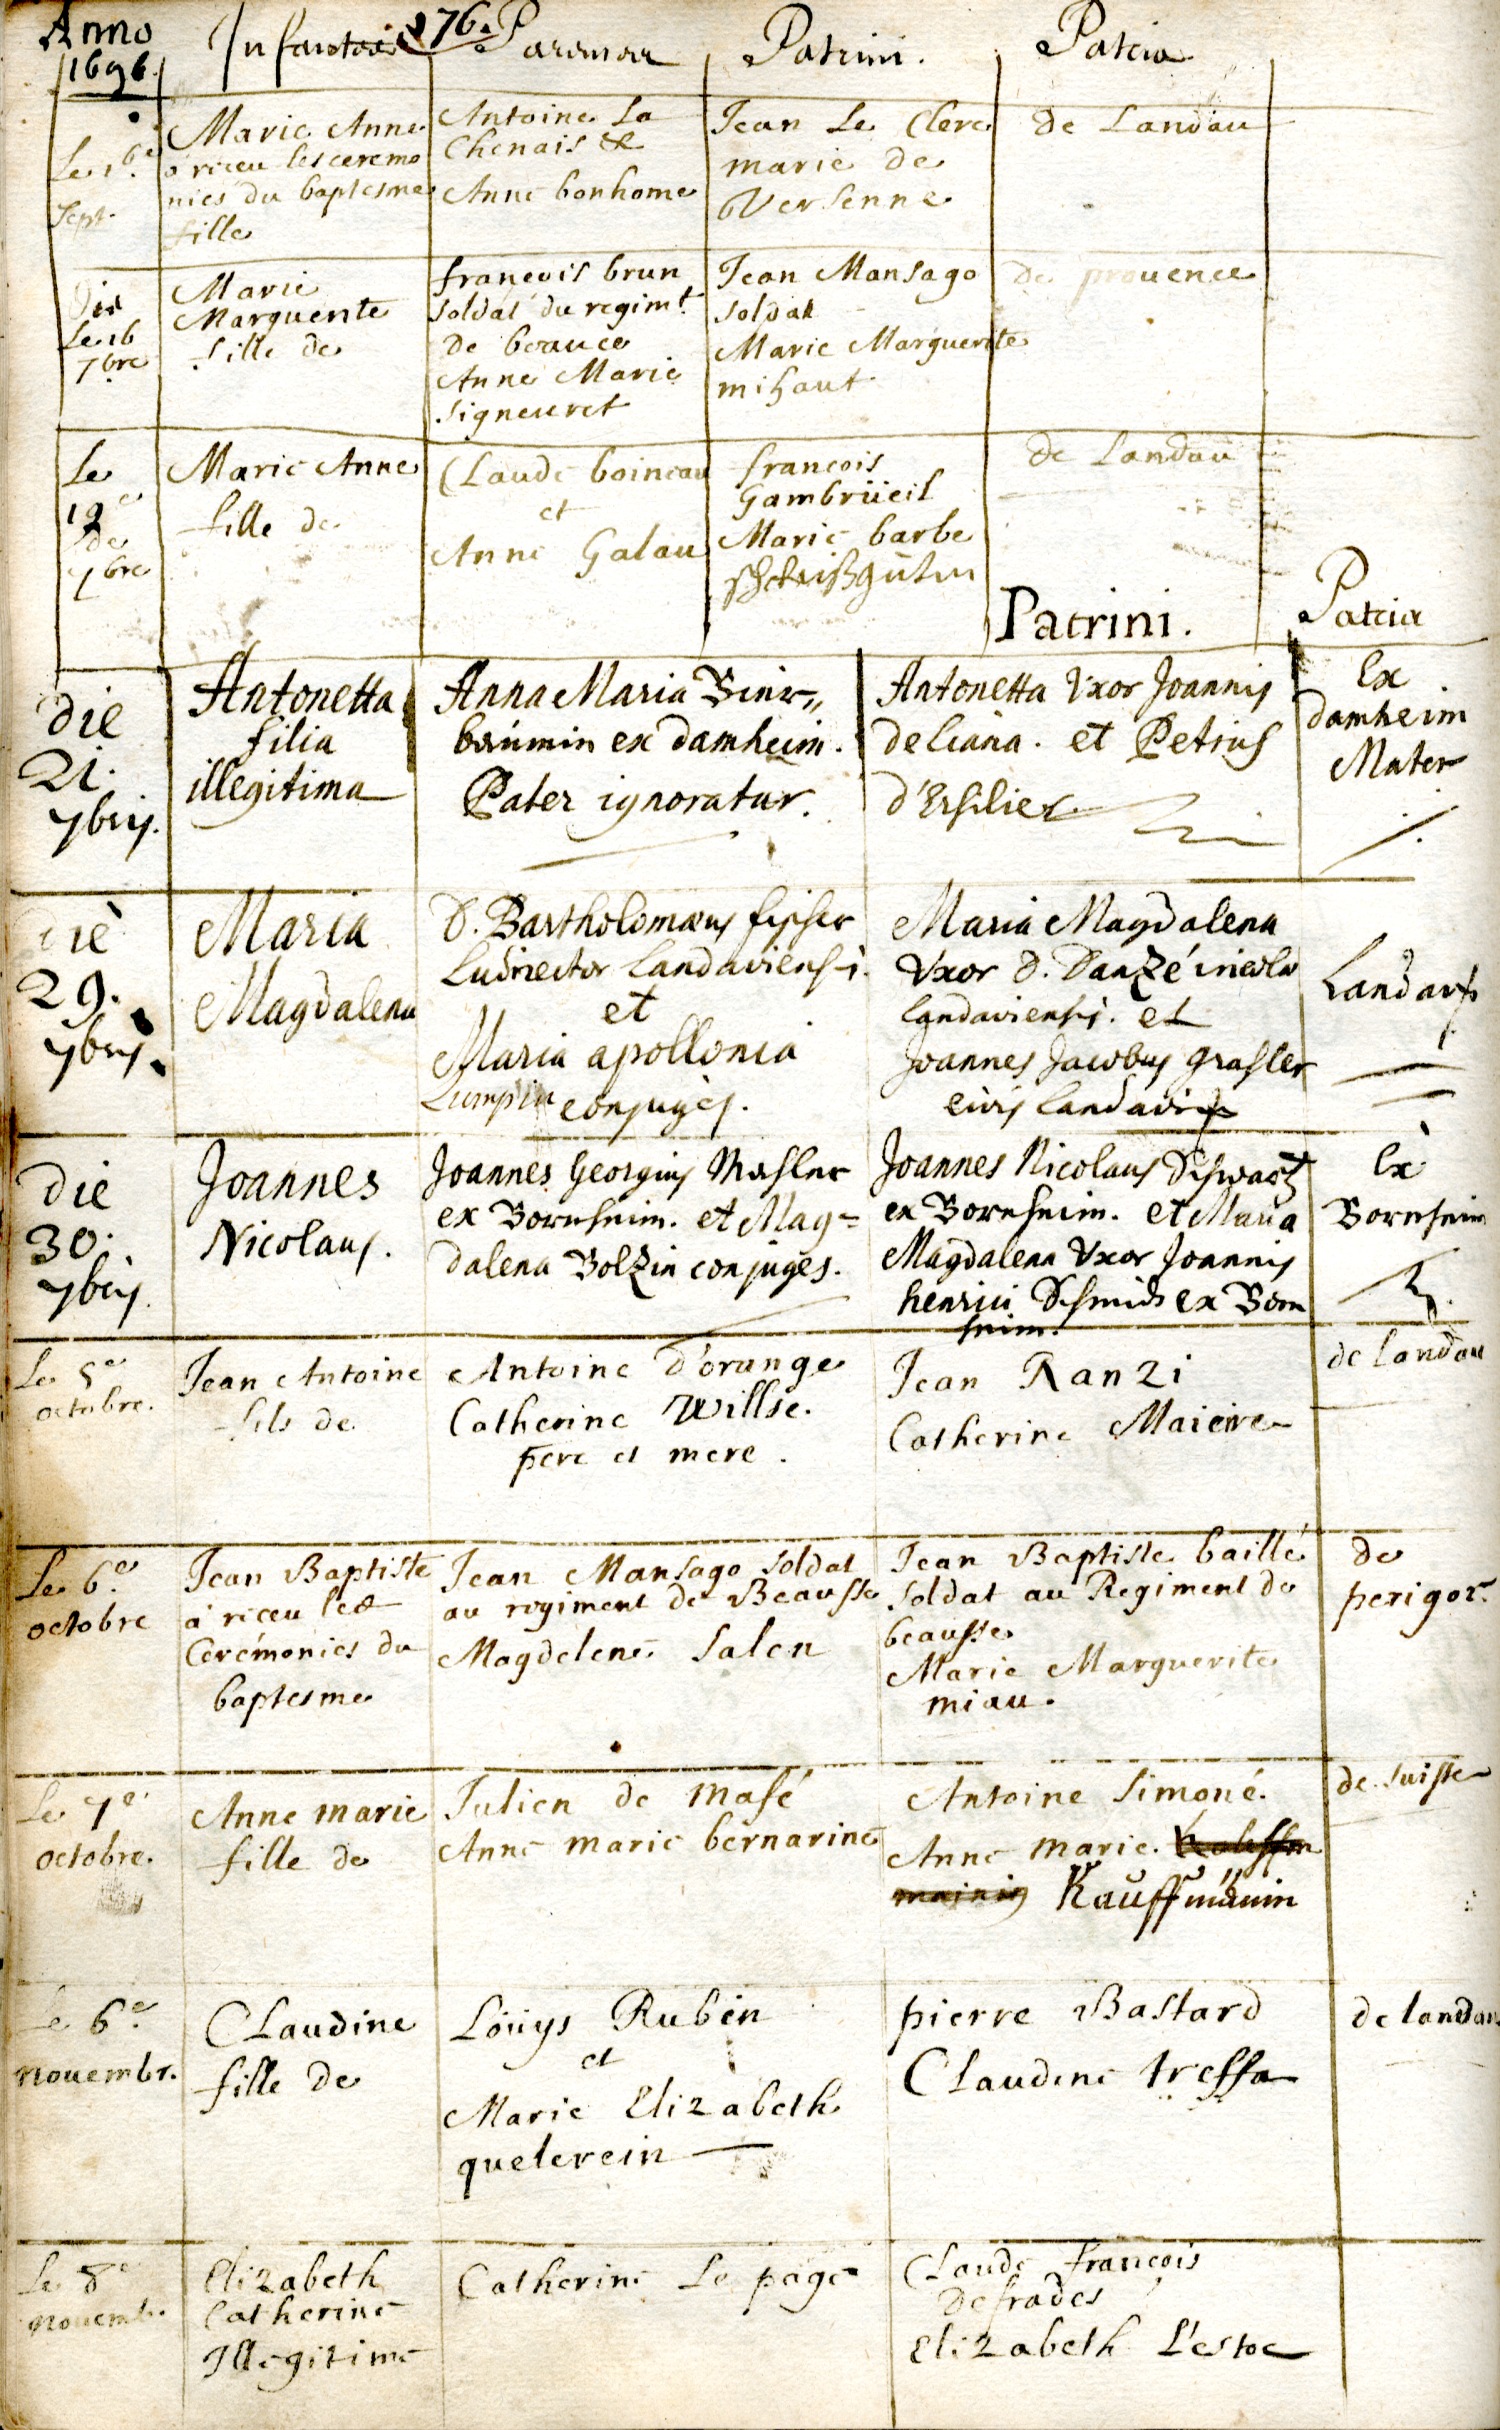 Anno
1696.
176.
Infantes
Parentes
Patrini.
Patria
Sept.
Marie Anne
a receu les ceremo
nies du baptesme
fille
Antoine La
Chenais &
Anne bonhome
Jean Le Clerc
marie de
Versenne
de Landau
Le 16
7bre
Marie
Marguerite
fille de
françois brun
soldat du regimt.
de beauce
Anne Marie
Signeuret
Jean Mansago
soldat
Marie Marguerite
mihaut
de prouence
Le
de
7bre
Marie Anne
fille de
Claude boineau
et
Anne Galau
francois
Gambrüeil
Marie barbe
de Landau
Patrini.
Patria
die
21.
7bris.
Antonetta
filia
illegitima
Anna Maria Birn=
baumin ex damheim.
Pater ignoratur.
Antonetta Uxor Joannis
deliana. et Petrus
d'Ersilier
Ex
damheim
Mater
die
29.
7bris.
Maria
Magdalena
D. Bartholomæus fischer
Ludirector Landaviensis.
et
Maria apollonia
Lumpin conjuges.
Maria Magdalena
Uxor D. Danzé incolæ
Landaviensis. et
Joannes Jacobus Grasler
civis Landaviensis
Landavij
die
30.
7bris.
Joannes
Nicolaus.
Joannes Georgius Mesler
ex Bornheim. et Mag=
dalena Bolzin conjuges.
Joannes Nicolaus Schwartz
ex Bornheim. et Maria
Magdalena Uxor Joannis
henrici Schmid ex Born
heim.
Ex
Bornheim
Le 5e
octobre.
Jean Antoine
fils de
Antoine d'orange
Catherine Willse.
pere et mere.
Jean Ranzi
Catherine Maieire
de Landau
Le 6e
octobre
Jean Baptiste
a receu les
Cerémonies du
baptesme
Jean Mansago soldat
au regiment de Beausse
Magdelene Salen
Jean Baptiste baillé
soldat au Regiment de
beausse
Marie Marguerite
miau.
de
perigort
Le 7e
octobre.
Anne marie
fille de
Julien de Masé
Anne marie bernarine
Antoine Simoné.
Anne marie.
Kauffmanin
de suisse
Le 6e
Nouembr.
Claudine
fille de
Loüys Rubin
et
Marie Elizabeth
quelerein
pierre Bastard
Claudine treffa
de landau
Le 8e
nouemb.
Elizabeth
Catherine
Illegitime
Catherine Le page
Claude françois
Defrades
Elizabeth L'estoc